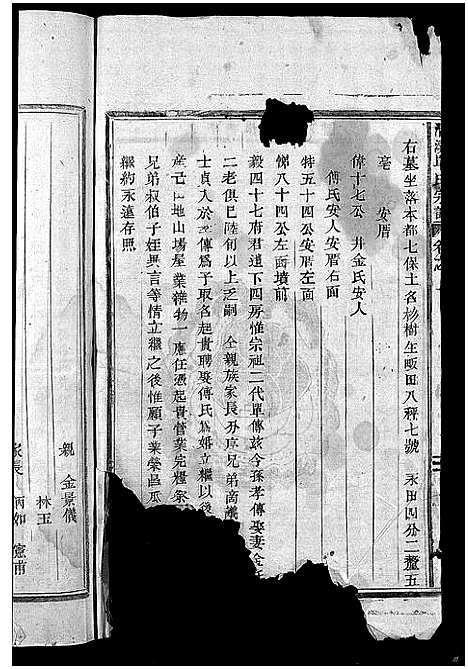 右墓坐落本都七保土名杉樹坵畈田八秤七號 永田四分二釐五
毫 安厝
偉十七公 井金氏安人
傅氏安人安厝右面
特五十四公安厝左面
悌八十四公左面墳前
毅四十七府君遺下四房惟宗祖二代單傳玆今孫孝傳娶妻金氏
二老俱已陸旬以上乏嗣 仝親族家長 兄弟商議
士貞入於 傳爲子取名起貴聘娶傅氏爲婚立繼以後
產 山地山塲屋業雜物一應任憑起貴管業完糧祭
兄弟叔伯子姪無言等情立繼之後惟願子業榮昌瓜
繼約永遠存照
親 金景儀
林玉
家長 炳如 憲甫